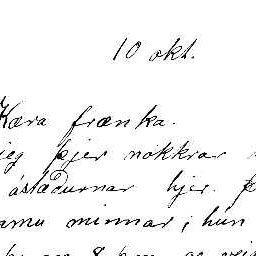 10 okt.
Kæra frænka.
jeg þjer nokkrar
ástæðurnar hjer.
ömmu minnar, hún